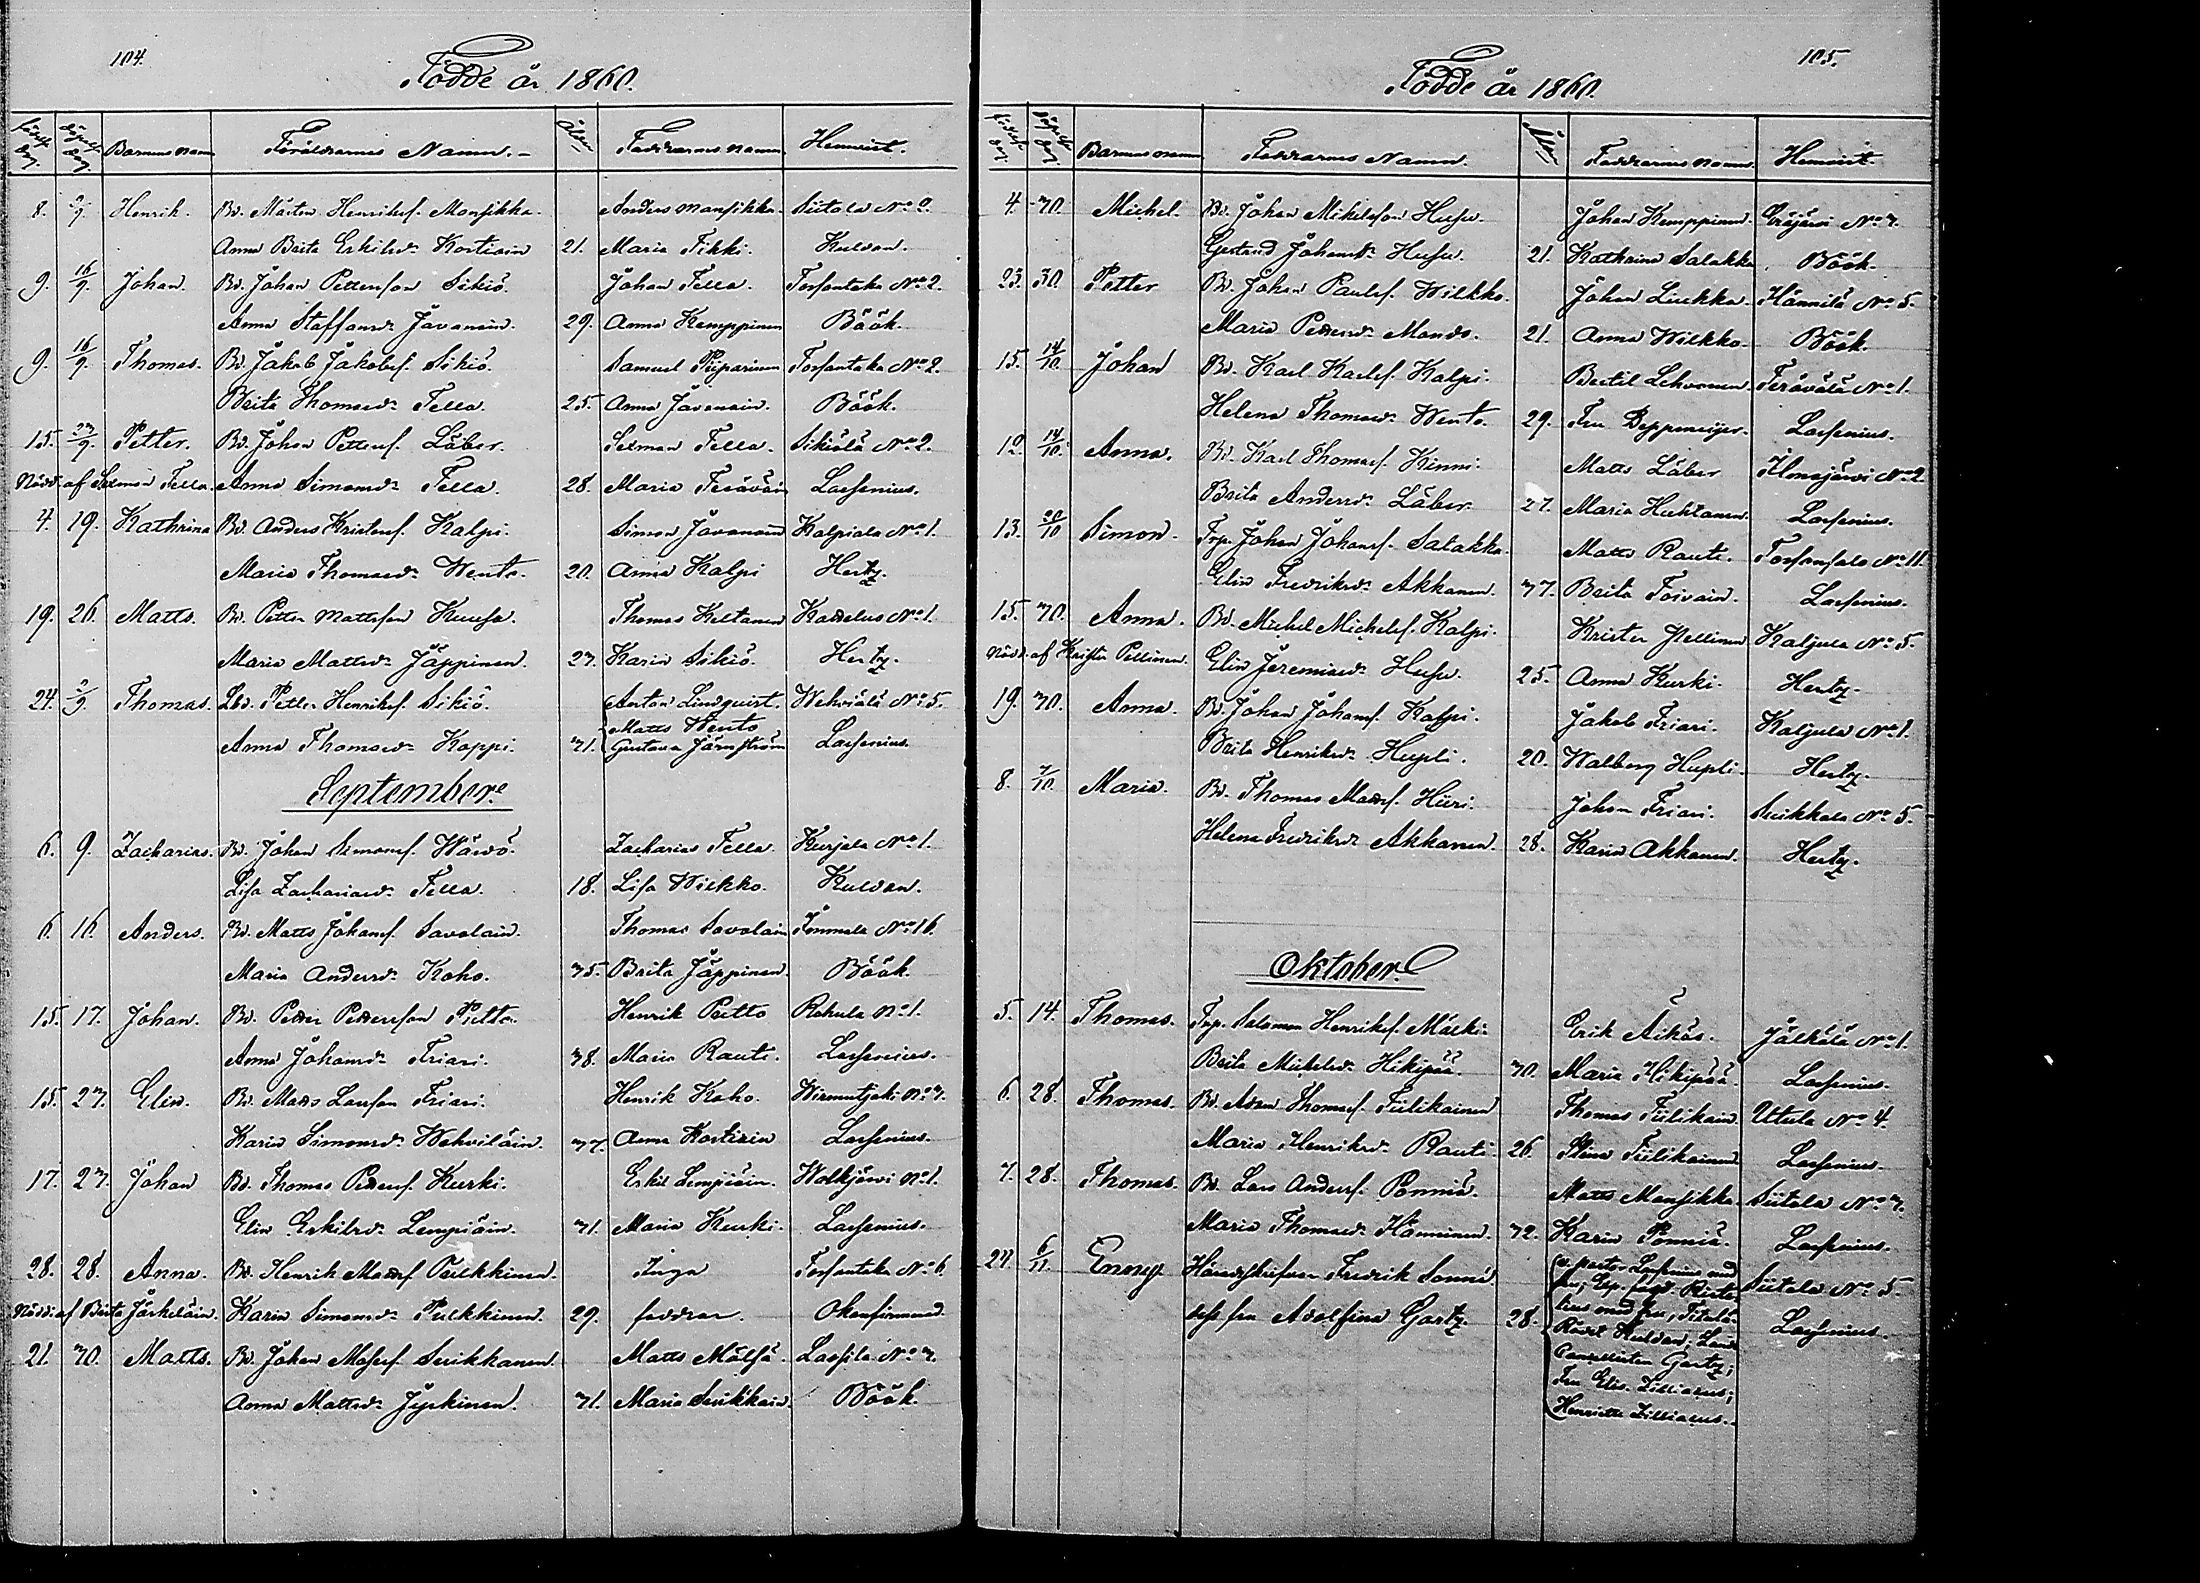 104.
Födde år 1860.
Födelse dag. Döpelse dag. Barnens namn Föräldrarnes Namn. Ålder Faddrarnes namn Hemvist.
8. 2/9. Henrik. Bd. Mårten Henriksf. Mansikka. Anders Mansikka. Siitola No 2.
Anna Brita Eskilsdr Kortiain 21. Maria Tikki. Kuldvan.
9. 16/9. Johan. Bd. Johan Pettersson Sikiö. Johan Tella. Torfantaka No 2.
Anna Staffansdr Javanain. 29. Anna Kemppinen Böök.
9. 16/9. Thomas. Bd. Jakob Jakobsf. Sikiö. Samuel Piiparinen Torfantaka No 2.
Brita Thomasdr Tella. 25. Anna Javanain. Böök.
15. 23/9. Petter. Bd. Johan Pettersf. Läber. Salmon Tella. Sikiälä No 2.
Nödd. af Salmon Tella. Anna Simonsdr Tella. 28. Maria Teräväin Laesenius.
4. 19. Kathrina Bd. Anders Kristersf. Kalpi. Simon Javanain Kalpiala No 1.
Maria Thomasdr Wento. 20. Anna Kalpi Hertz.
19. 26. Matts. Bd. Petter Mattsson Kuusa. Thomas Keltanen Kasselus No 1.
Maria Mattsdr Jäppinen. 27. Karin Sikiö. Hertz.
24. 2/9. Thomas. Lbd. Petter Henriksf. Sikiö. Anton Lindquist. Wehviälä No 5.
Matts Wento
Anna Thomasdr Koppi. 31. Gustava Järnström Laesenius.
September.
6. 9. Zacharias. Bd. Johan Simonsf. Wäwö. Zacharias Tella. Kurjala No 1.
Lisa Zachariasdr Tella. 18. Lisa Wilkko. Kuldvan.
6. 16. Anders. Bd. Matts Johansf. Savolain. Thomas Savolain Tommala No 16.
Maria Andersdr Koho. 35. Brita Jäppinen. Böök.
15. 17. Johan. Bd. Petter Pettersson Putto. Henrik Putto Rahula No 1.
Anna Johansdr Friari. 38. Maria Rauti. Laesenius.
15. 23. Elin. Bd. Matts Larsson Friari. Henrik Koho. Wirmutjoki No 7.
Karin Simonsdr Wehviläin. 37. Anna Kortiain Laesenius.
17. 23. Johan Bd. Thomas Pettersf. Kurki. Eskil Lempiäin. Walkjärvi No 1.
Elin Eskilsdr Lempiäin. 31. Maria Kurki. Laesenius.
28. 28. Anna. Bd. Henrik Mattsf. Pulkkinen. Inga Torfantaka No 6.
Nöddöpt af Brita Järkeläin. Karin Simonsdr Pulkkinen. 29. faddrar. Okonfirmerad.
21. 30. Matts. Bd. Johan Mosesf. Suikkanen. Matts Mälsä. Lassila No 3.
Anna Mattsdr Jyskinen. 31. Maria Suikkain. Böök.
105.
Födde år 1860.
Födelse dag. Döpelse dag. Barnens namn Föräldrarnes Namn. Ålder Faddrarnes namn. Hemvist.
4. 30. Michel. Bd. Johan Mikelsson Husu. Johan Kemppinen Eräjärvi No 7.
Gertrud Johansdr Husu. 21. Kathrina Salakka. Böök.
23. 30. Petter Bd. Johan Paulsf. Wilkko. Johan Liukka. Hännilä No 5.
Maria Pettersdr Mando. 21. Anna Wilkko. Böök.
15. 14/10 Johan Bd. Karl Karlsf. Kalpi. Bertil Lehvonen. Terävälä No 1.
Helena Thomasdr Wento. 29. Fru Deppmeijer. Laesenius.
12. 14/10. Anna. Bd. Karl Thomasf. Kinni. Matts Läber Ilmajärvi No 2
Brita Andersdr Läber. 27. Maria Huhtanen. Laesenius.
13. 20/10 Simon. Trp. Johan Johansf. Salakka. Matts Rauti. Torfansalo No 11.
Elin Fredriksdr Akkanen. 37. Brita Toivain. Laesenius.
15. 30. Anna. Bd. Michel Michelsf. Kalpi. Krister Pellinen Kaljula No 5.
Nödd. af Krister Pellinen. Elin Jeremiasdr Husu. 25. Anna Kurki. Hertz.
19. 30. Anna. Bd. Johan Johansf. Kalpi. Jakob Friari. Kaljula No 1.
Brita Henriksdr Hupli. 20. Walborg Hupli. Hertz.
8. 7/10. Maria. Bd. Thomas Mattsf. Hüri. Johan Friari. Suikkala No 5.
Helena Fredriksdr Akkanen. 28. Karin Akkanen. Hertz.
Oktober.
5. 14. Thomas. Trp. Salomon Henriksf. Mälki. Erik Äikäs. Jälkälä No 1.
Brita Michelsdr Hikipää. 30. Maria Hikipää. Laesenius.
6. 28. Thomas. Bd. Adam Thomasf. Tiilikainen Thomas Tiilikain. Utula No 4.
Maria Henriksdr Rauti. 26. Stina Tiilikainen Laesenius.
7. 28. Thomas. Bd. Lars Andersf. Pönniä. Matts Mansikka. Siitola No 3.
Maria Thomasdr Hänninen. 32. Karin Pönniä. Laesenius.
24. 6/11. Emmy Handelsbetjenten Fredrik Sonni v. pastor Laesenius med Siitola No 5.
dess fru Adolfina Gartz. 28. fru; Exp. fogd. Rista-
lius med fru, Titulär
Rådet Kuldvan; Land Laesenius.
Cancellisten Gartz;
Fru Elis. Zilliacus;
Henriette Zilliacus.